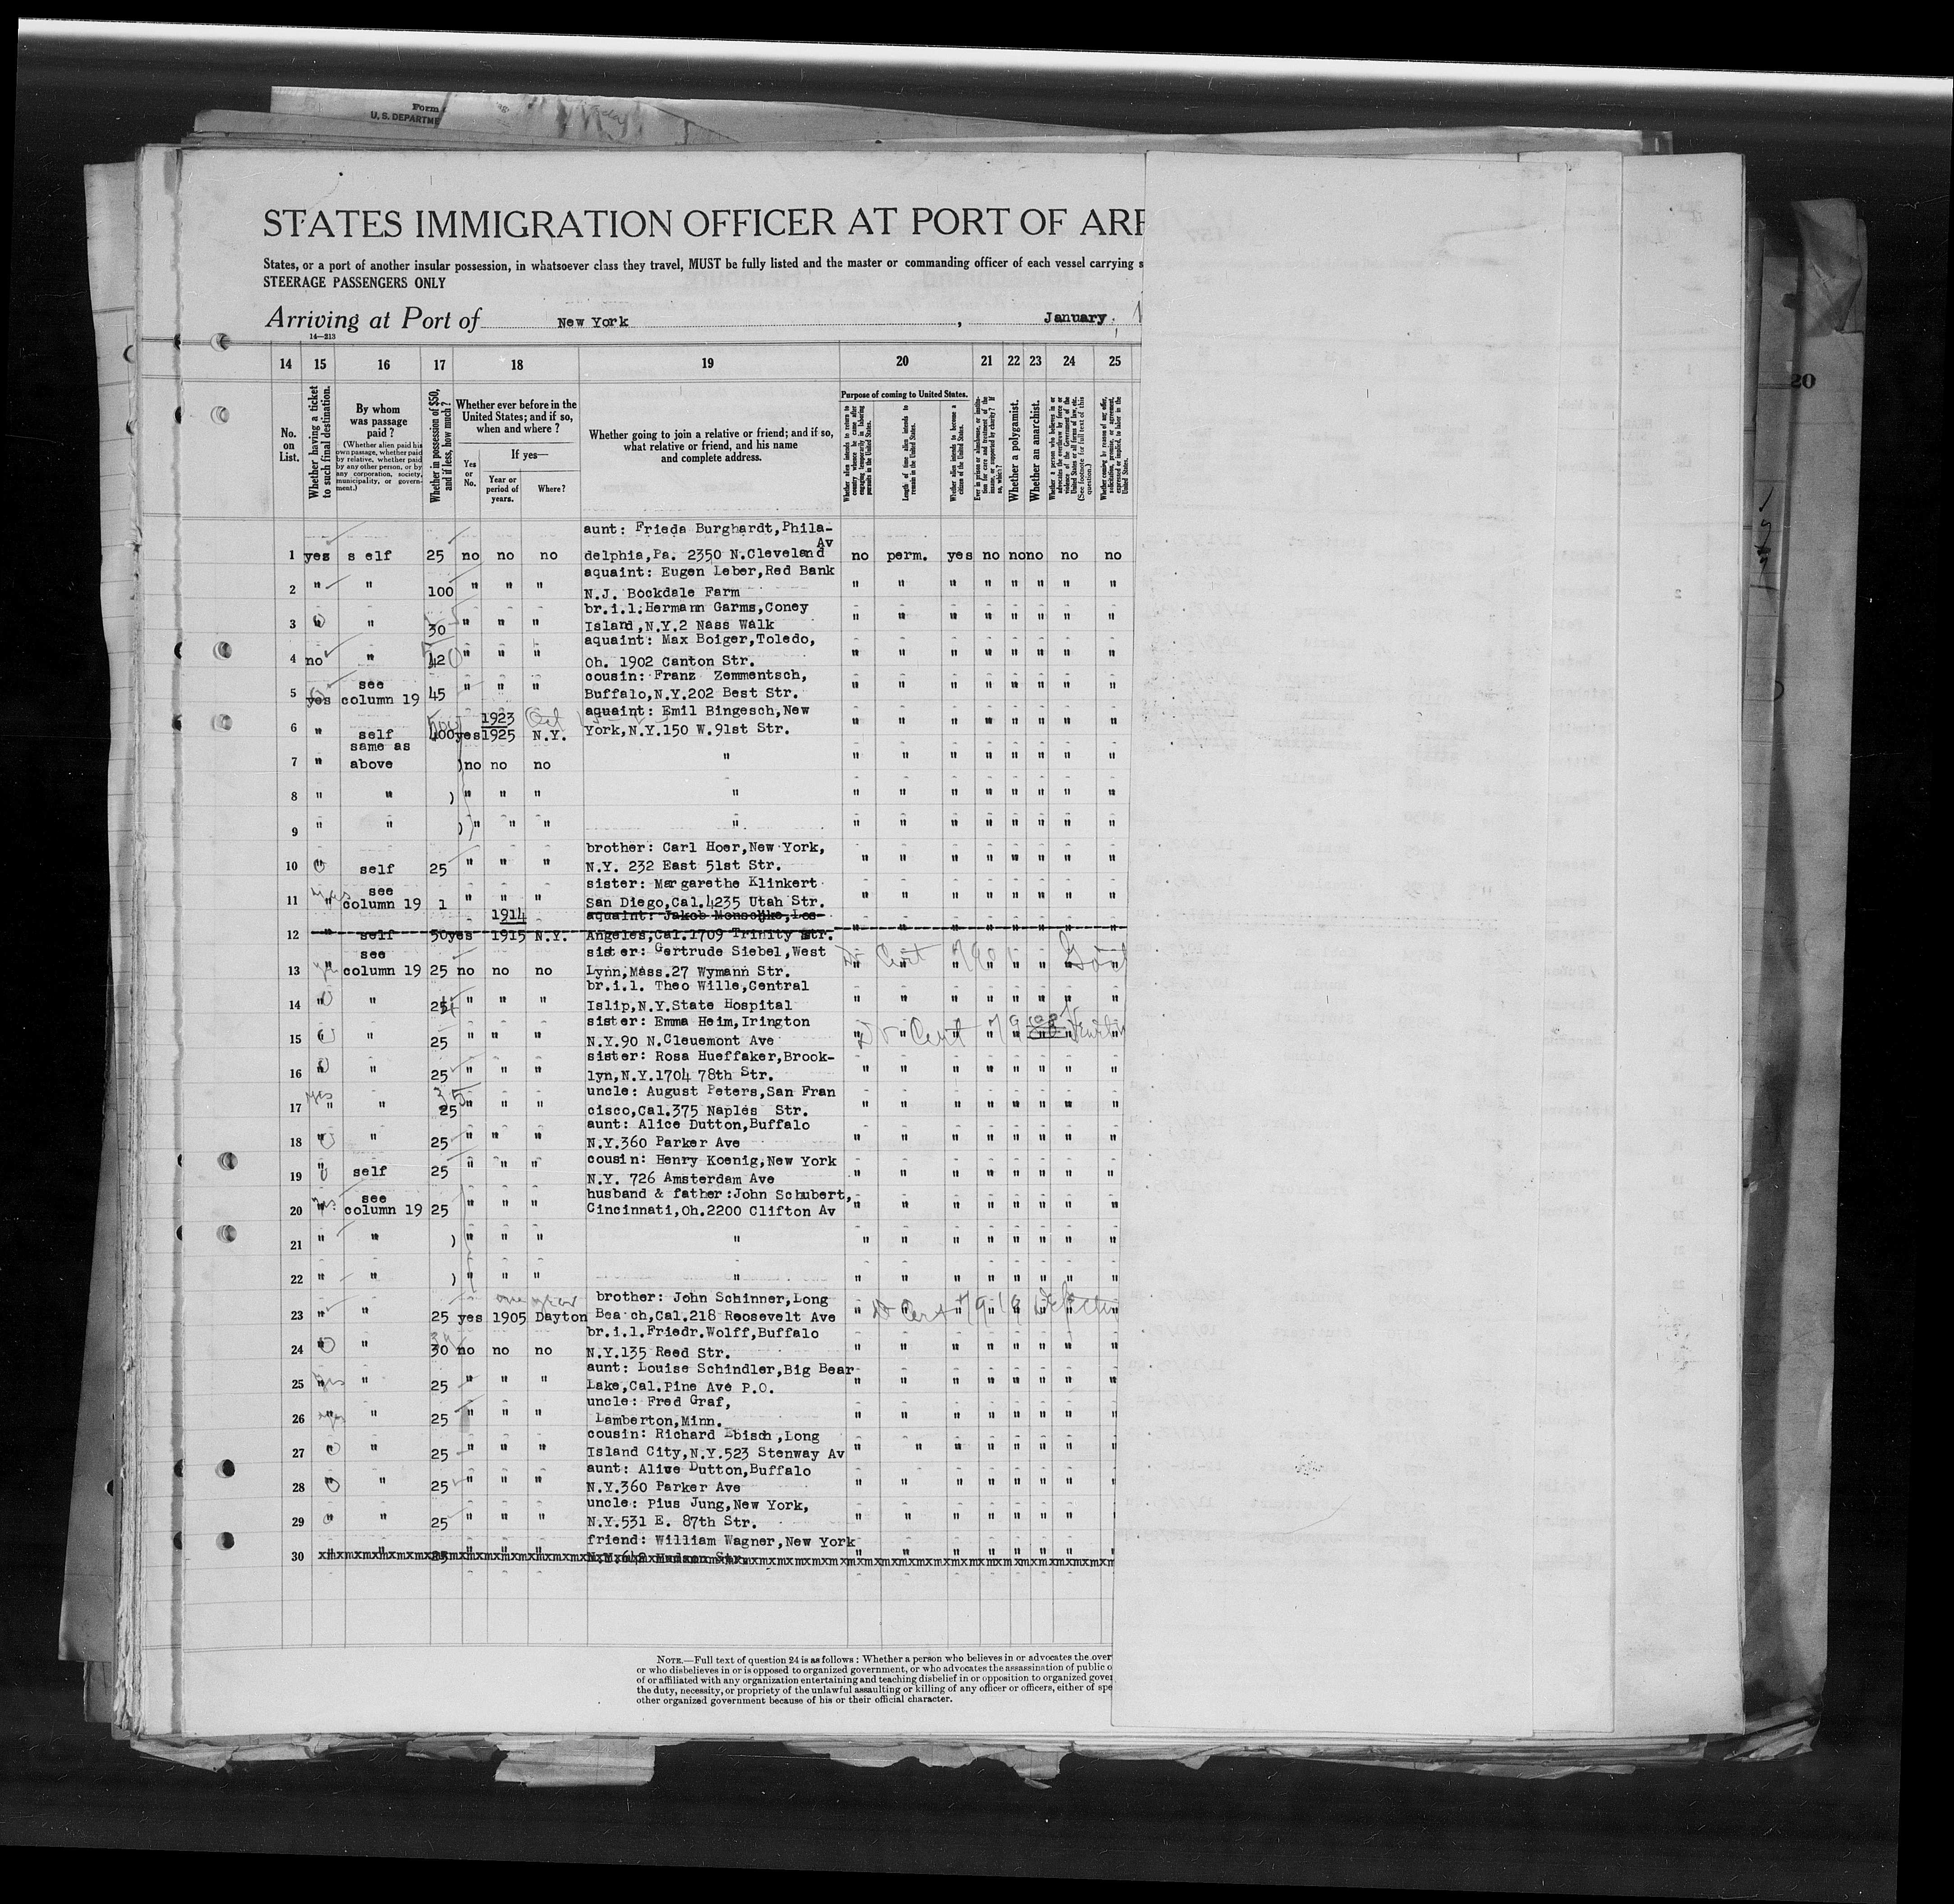 Form
U. S. DEPARTME
STATES IMMIGRATION OFFICER AT PORT OF ARR
States, or a port of another insular possession, in whatsoever class they travel, MUST be fully listed and the master or commanding officer of each vessel carrying s
STEERAGE PASSENGERS ONLY
Arriving at Port of New York, January,
14—213
14 15 16 17 18 19 20 21 22 23 24 25
No. on List.
Whether having a ticket to such final destination.
By whom was passage paid?
(Whether alien paid his own passage, whether paid by relative, whether paid by any other person, or by any corporation, society, municipality, or government.)
Whether in possession of $50, and if less, how much?
Whether ever before in the United States; and if so, when and where?
Yes or No.
If yes—
Year or period of years.
Where?
Whether going to join a relative or friend; and if so, what relative or friend, and his name and complete address.
Purpose of coming to United States.
Whether alien intends to return to country whence he came after engaging temporarily in laboring pursuits in the United States.
Length of time alien intends to remain in the United States.
Whether alien intends to become a citizen of the United States.
Ever in prison or almshouse, or institution for care and treatment of the insane, or supported by charity? If so, which?
Whether a polygamist.
Whether an anarchist.
Whether a person who believes in or advocates the overthrow by force or violence of the Government of the United States or all forms of law, etc. (See footnote for full text of this question.)
Whether coming by reason of any offer, solicitation, promise, or agreement, expressed or implied, to labor in the United States.
aunt: Frieda Burghardt, Phila-
Av
1 yes s elf 25 no no no delphia, Pa. 2350 N. Cleveland no perm. yes no no no no no
aquaint: Eugen Leber, Red Bank
2 " " 100 " " " N.J. Bockdale Farm " " " " " " " "
br.i.l. Hermann Garms, Coney
3 " " 30 " " " Island, N.Y. 2 Nass Walk " " " " " " " "
aquaint: Max Boiger, Toledo,
4 no " 42 " " " Oh. 1902 Canton Str. " " " " " " " "
cousin: Franz Zemmentsch,
5 yes see column 19 45 " " " Buffalo, N.Y. 202 Best Str. " " " " " " " "
1923 aquaint: Emil Bingesch, New
6 " self 400 yes 1925 N.Y. York, N.Y. 150 W. 91st Str. " " " " " " " "
7 " same as above ) no no no " " " " " " " " "
8 " " ) " " " " " " " " " " " "
9 " " ) " " " " " " " " " " " "
brother: Carl Hoer, New York,
10 " self 25 " " " N.Y. 232 East 51st Str. " " " " " " " "
sister: Margarethe Klinkert
11 yes " see column 19 1 " " " San Diego, Cal. 4235 Utah Str. " " " " " " " "
1914 aquaint: Jakob Monschke, Los
12 " self 50 yes 1915 N.Y. Angeles, Cal. 1709 Trinity Str. " " " " " " " "
sister: Gertrude Siebel, West
13 " see column 19 25 no no no Lynn, Mass. 27 Wymann Str. " " " " " " " "
br.i.l. Theo Wille, Central
14 " " 25 " " " Islip, N.Y. State Hospital " " " " " " " "
sister: Emma Heim, Irington
15 " 25 " " " N.Y. 90 N. Cleuemont Ave " " " " " " "
sister: Rosa Hueffaker, Brook-
16 " " 25 " " " lyn, N.Y. 1704 78th Str. " " " " " " " "
uncle: August Peters, San Fran
17 yes " " 35 25 " " " cisco, Cal. 375 Naples Str. " " " " " " " "
aunt: Alice Dutton, Buffalo
18 " " 25 " " " N.Y. 360 Parker Ave " " " " " " " "
cousin: Henry Koenig, New York
19 " self 25 " " " N.Y. 726 Amsterdam Ave " " " " " " " "
husband & father: John Schubert,
20 yes " see column 19 25 " " " Cincinnati, Oh. 2200 Clifton Av " " " " " " " "
21 " " ) " " " " " " " " " " " "
22 " " ) " " " " " " " " " " " "
one year brother: John Schinner, Long
23 " " 25 yes 1905 Dayton Beach, Cal. 218 Roosevelt Ave " " " " " " "
br.i.l. Friedr. Wolff, Buffalo
24 " " 30 no no no N.Y. 135 Reed Str. " " " " " " " "
aunt: Louise Schindler, Big Bear
25 yes " 25 " " " Lake, Cal. Pine Ave P.O. " " " " " " " "
uncle: Fred Graf,
26 yes " 25 " " " Lamberton, Minn. " " " " " " " "
cousin: Richard Ebisch, Long
27 " " 25 " " " Island City, N.Y. 523 Stenway Av " " " " " " " "
aunt: Alive Dutton, Buffalo
28 " " 25 " " " N.Y. 360 Parker Ave " " " " " " " "
uncle: Pius Jung, New York,
29 " " 25 " " " N.Y. 531 E. 87th Str. " " " " " " " "
friend: William Wagner, New York
30 " " " " " Hudson Str. " " " " " " " "
NOTE.—Full text of question 24 is as follows: Whether a person who believes in or advocates the over
or who disbelieves in or is opposed to organized government, or who advocates the assassination of public o
of or affiliated with any organization entertaining and teaching disbelief in or opposition to organized gover
the duty, necessity, or propriety of the unlawful assaulting or killing of any officer or officers, either of spe
other organized government because of his or their official character.
20